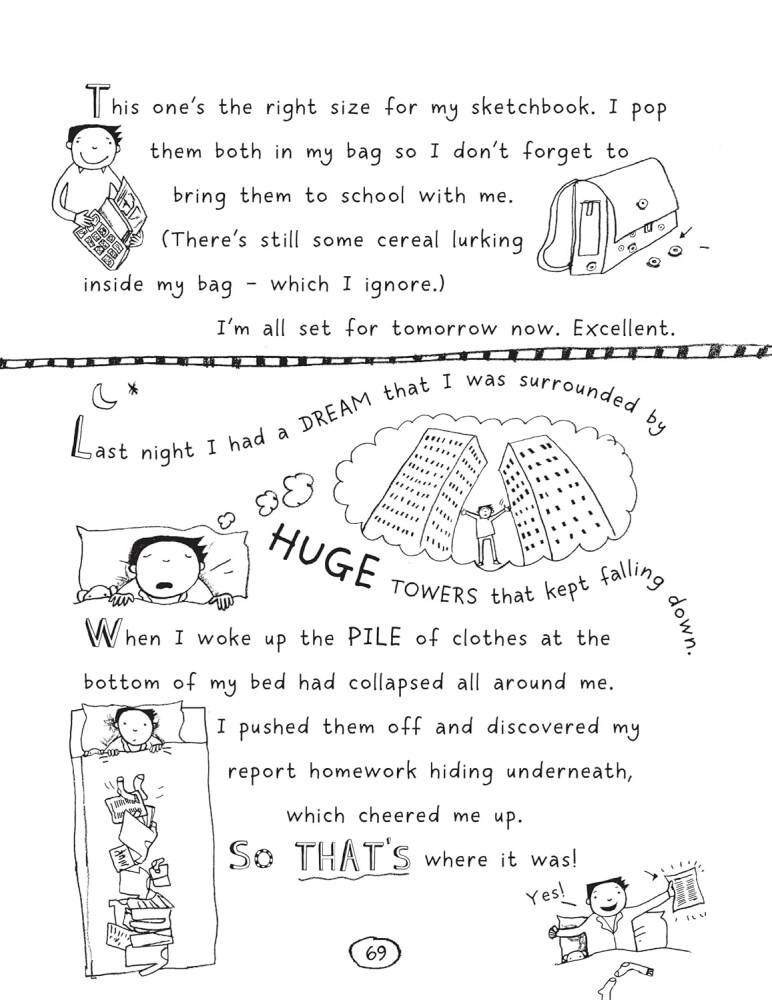 This one's the right size for my sketchbook. I pop
them both in my bag so I don't forget to
bring them to school with me.
(There's still some cereal lurking
inside my bag - which I ignore.)
I'm all set for tomorrow now. Excellent.
Last night I had a DREAM that I was surrounded by
HUGE TOWERS that kept falling down.
When I woke up the PILE of clothes at the
bottom of my bed had collapsed all around me.
I pushed them off and discovered my
report homework hiding underneath,
which cheered me up.
So THAT's where it was!
Yes!
69